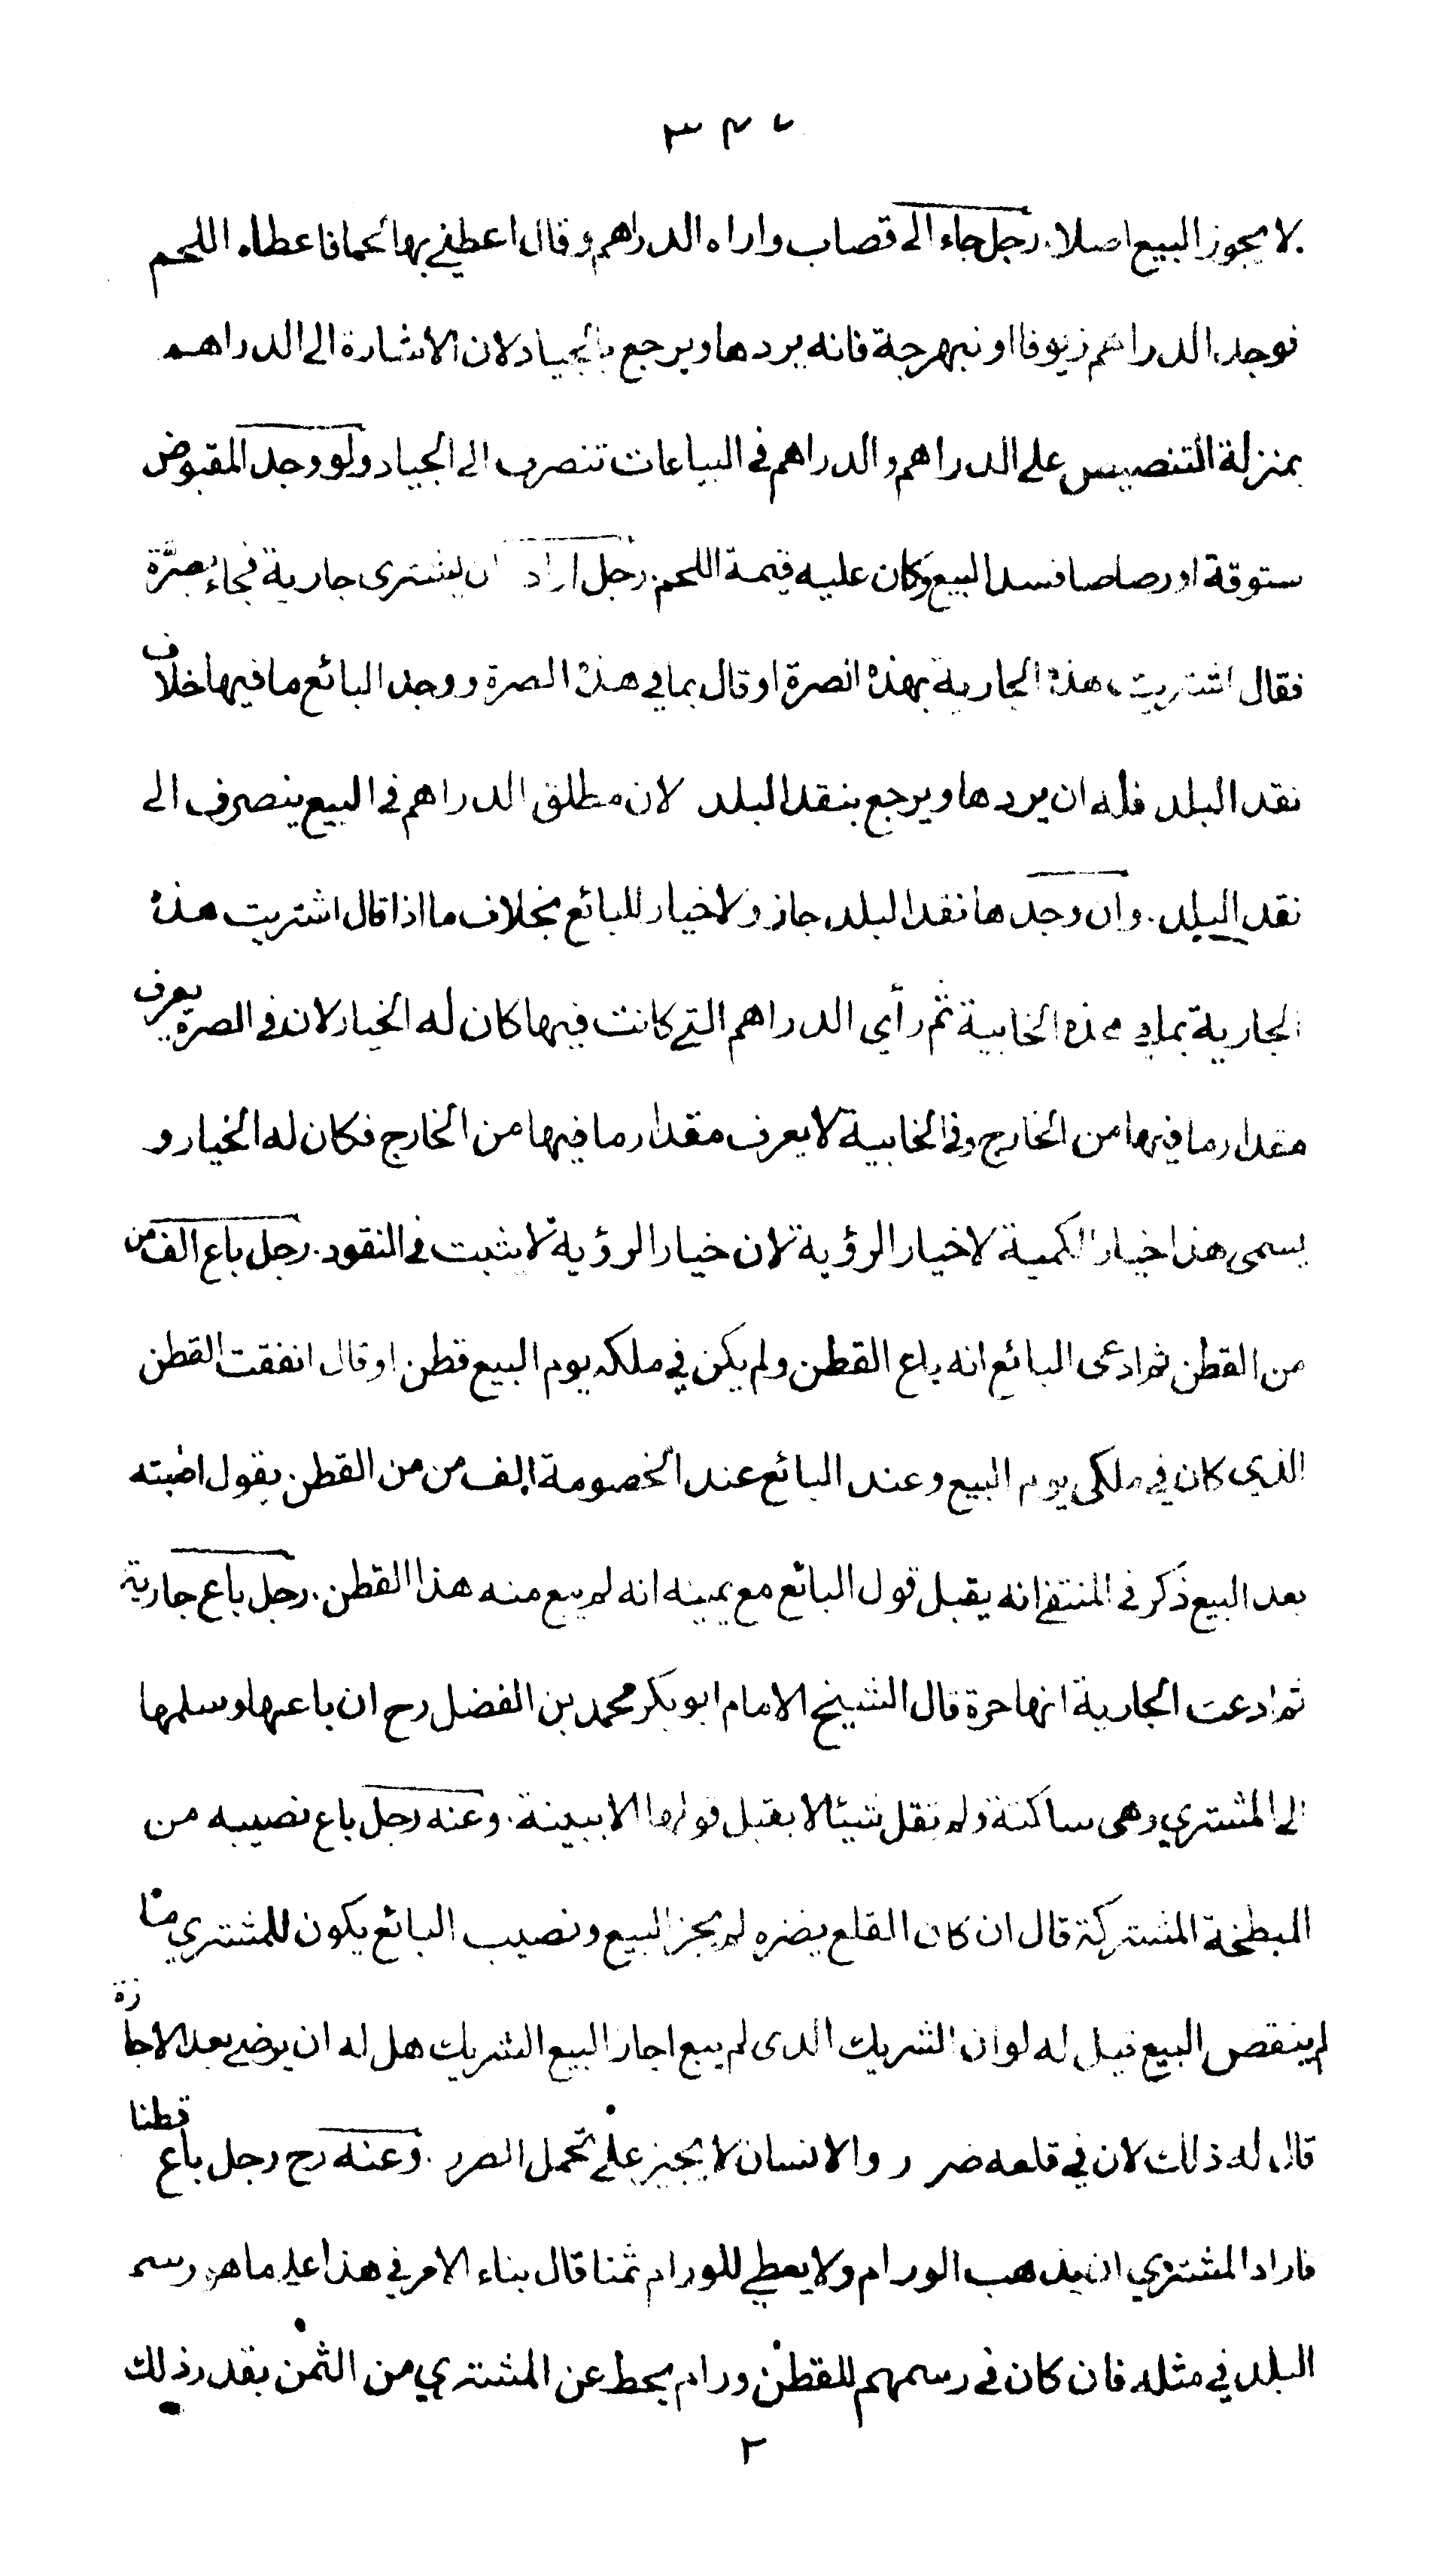 لا يجوز البيع اصلا. رجل جاء الى قصاب واراه الدراهم وقال اعطني بها لحما فاعطاه اللحم
فوجد الدراهم زيوفا او نبهرجة فانه يردها ويرجع بالجياد لان الاشارة الى الدراهم
بمنزلة التنصيص على الدراهم والدراهم في البياعات تنصرف الى الجياد ولو وجد المقبوض
ستوقة او رصاصا فسد البيع وكان عليه قيمة اللحم. رجل اراد ان يشترى جارية فجاء بصرّة
فقال اشتريت هذه الجارية بهذه الصرة او قال بما في هذه الصرة ووجد البائع ما فيها خلاف
نقد البلد فله ان يردها ويرجع بنقد البلد لان مطلق الدراهم في البيع ينصرف الى
نقد البلد. وان وجدها نقد البلد جاز ولا خيار للبائع بخلاف ما اذا قال اشتريت هذه
الجارية بما في هذه الخابية ثم رأي الدراهم التي كانت فيها كان له الخيار لان في الصرة يعرف
مقدار ما فيها من الخارج وفي الخابية لا يعرف مقدار ما فيها من الخارج فكان له الخيار و
يسمى هذا خيار الكمية لا خيار الرؤية لان خيار الرؤية لا يثبت في النقود. رجل باع الف من
من القطن ثم ادعى البائع انه باع القطن ولم يكن في ملكه يوم البيع قطن او قال انفقت القطن
الذي كان في ملكى يوم البيع وعند البائع عند الخصومة الف من من القطن يقول اصبته
بعد البيع ذكر في المنتقى انه يقبل قول البائع مع يمينه انه لم يبع منه هذا القطن. رجل باع جارية
ثم ادعت الجارية انها حرة قال الشيخ الامام ابو بكر محمد بن الفضل رح ان باعها وسلمها
الى المشتري وهى ساكتة ولم تقل شيئا لا يقبل قولها الا ببينة. وعنه رجل باع نصيبه من
المبطخة المشتركة قال ان كان القلع يضره لم يجز البيع ونصيب البائع يكون للمشتري ما
لم ينقض البيع قيل له لو ان الشريك الذى لم يبع اجاز البيع الشريك هل له ان يرضى بعد الاجازة
قال له ذلك لان في قلعه ضرر والانسان لا يجبر على تحمل الضرر. وعنه رح رجل باع قطنا
فاراد المشتري ان يذهب الورام ولا يعطي للورام ثمنا قال بناء الامر في هذا على ما هو رسم
البلد في مثله فان كان في رسمهم للقطن ورام يحط عن المشتري من الثمن بقدر ذلك
٢